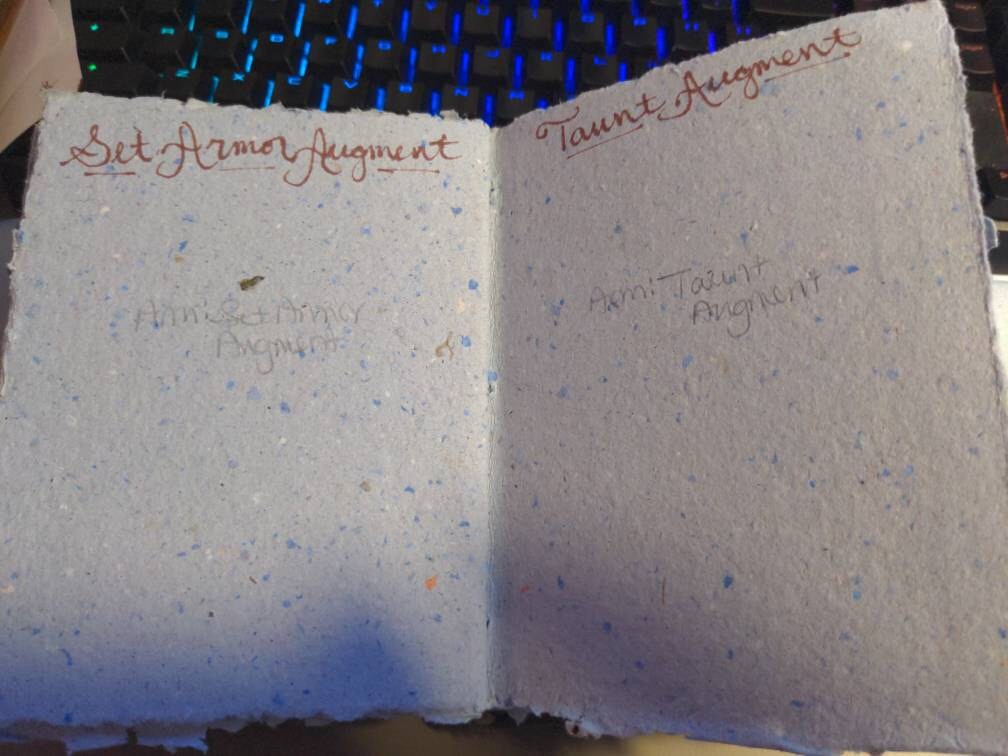 Set Armor Augment
Armi Set Armor
Augment
Taunt Augment
Armi Taunt
Augment